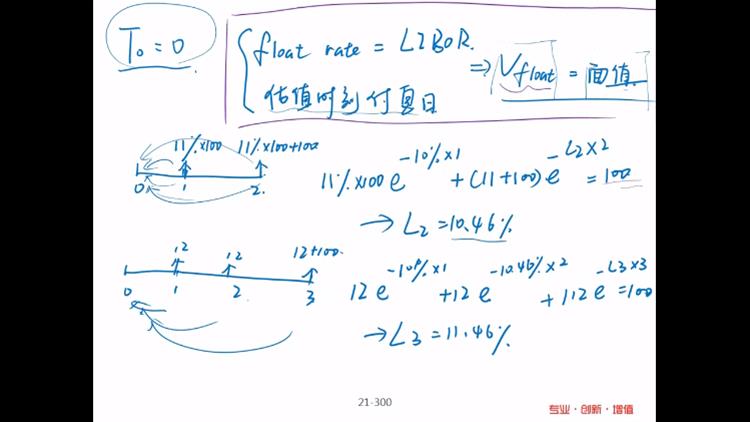 T₀ = 0
float rate = LIBOR.
估值时刻付息日
⇒ V float = 面值
11%×100 11%×100+100
0 1 2
11%×100 e^{-10%×1} + (11+100) e^{-L2×2} = 100
→ L₂ = 10.46%
12 12 12+100
0 1 2 3
12 e^{-10%×1} + 12 e^{-10.46%×2} + 112 e^{-L3×3} = 100
→ L₃ = 11.46%
21-300
专业·创新·增值